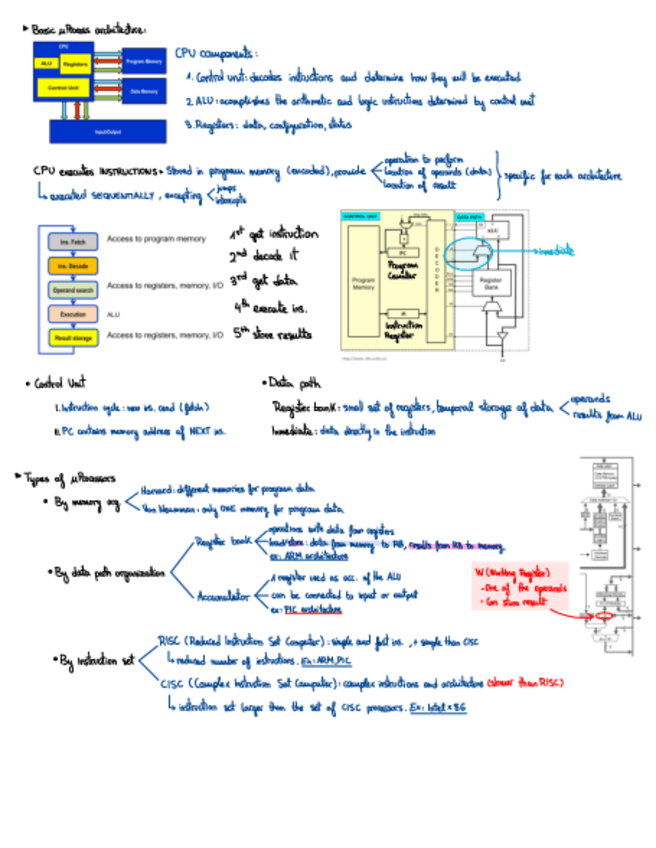 ▶ Basic μProcess architecture:
CPU
ALU Registers
Control Unit
Program Memory
Data Memory
Input/Output
CPU components:
1. Control unit: decodes instructions and determine how they will be executed
2. ALU: acomplishes the arithmetic and logic instructions determined by control unit
3. Registers: data, configuration, status
CPU executes INSTRUCTIONS → Stored in program memory (encoded), provide
operation to perform
location of operands (data)
location of result
specific for each architecture
↳ executed SEQUENTIALLY, excepting
jumps
interrupts
Ins. Fetch Access to program memory 1st get instruction
Ins. Decode 2nd decode it
Operand search Access to registers, memory, I/O 3rd get data
Execution ALU 4th execute ins.
Result storage Access to registers, memory, I/O 5th store results
CONTROL UNIT
DATA PATH
Program Memory
PC
Program Counter
IR
Instruction Register
DECODER
ALU
Register Bank
immediate
• Control Unit
I. Instruction cycle: new ins. cond (fetch)
II. PC contains memory address of NEXT ins.
• Data path
Register bank: small set of registers, temporal storage of data
operands
results from ALU
Inmediate: data directly in the instruction
▶ Types of μProcessors
• By memory org.
Harvard: different memories for program data
Von Neumann: only ONE memory for program data
• By data path organization
Register bank
operations with data from registers
load/store: data from memory to RB, results from RB to memory
ex: ARM architecture
Accumulator
1 register used as acc. of the ALU
can be connected to input or output
ex: PIC architecture
W (Working Register)
- One of the operands
- Can store result
• By instruction set
RISC (Reduced Instruction Set Computer): simple and fast ins., + simple than CISC
↳ reduced number of instructions. Ex: ARM, PIC
CISC (Complex Instruction Set Computer): complex instructions and architecture (slower than RISC)
↳ instruction set larger than the set of CISC processors. Ex: Intel x86